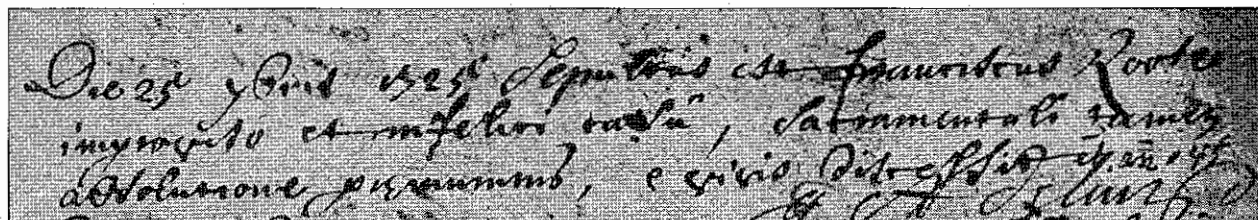 Die 25 9bris 1525 Sepultus est Franciscus Roote
improviso et infelici casu, sacramentali tamen
absolutione praemunitus, e vivis discessit